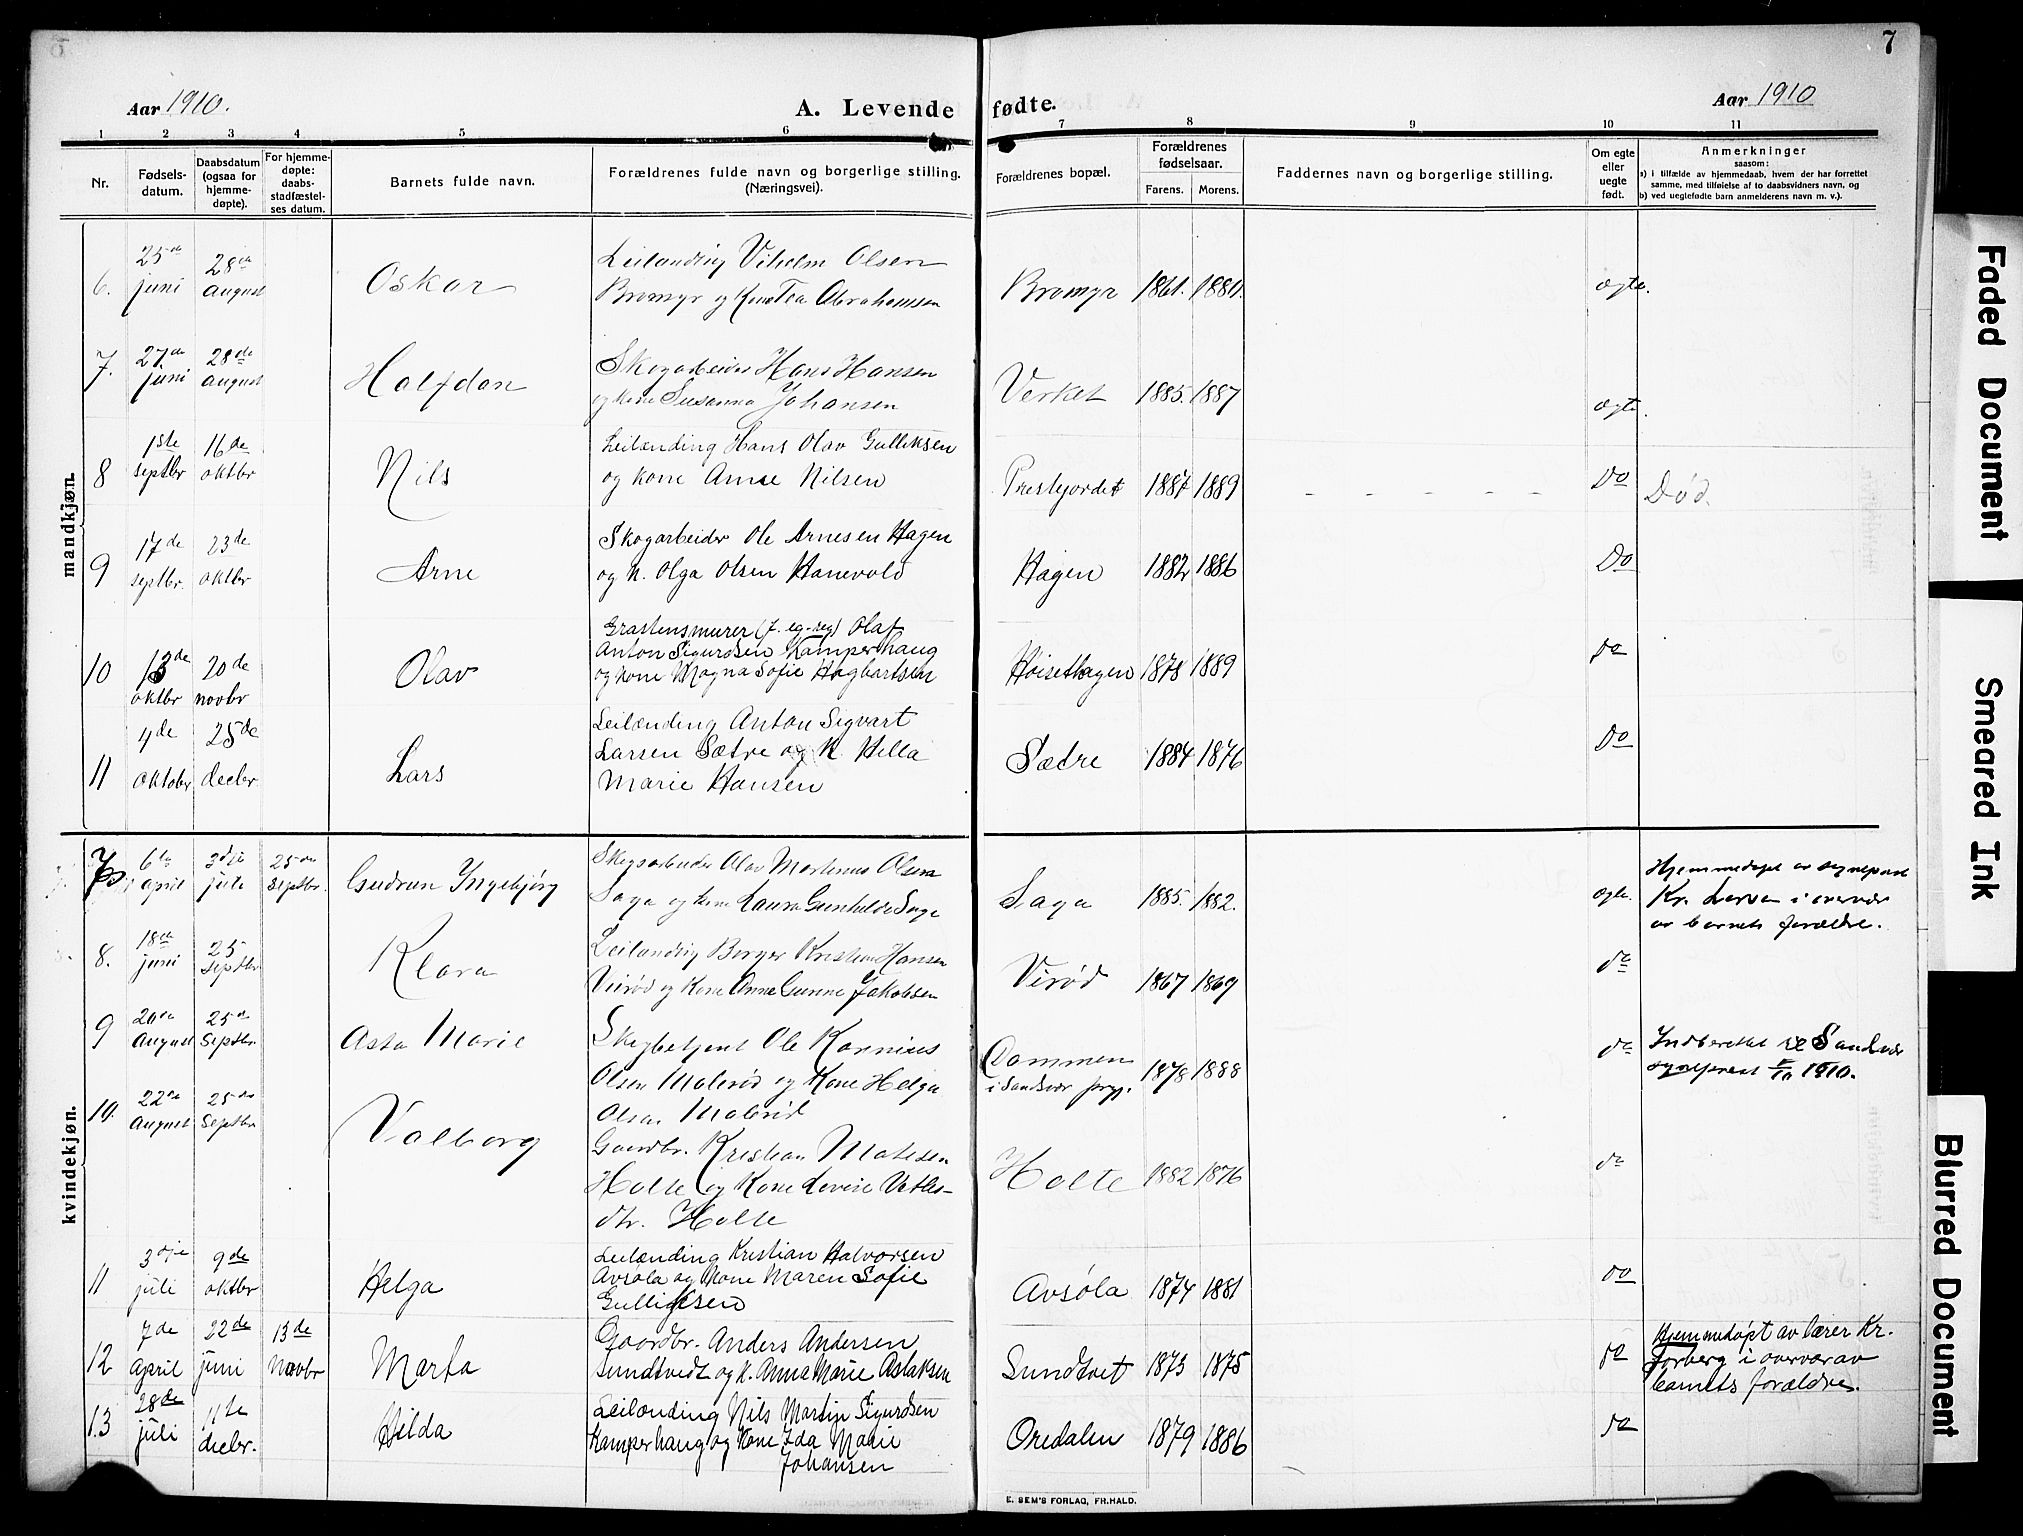 7
Aar 1910.
A. Levende fødte.
Aar 1910
1 2 3 4 5 6 7 8 9 10 11
Nr.
Fødsels-
datum.
Daabsdatum
(ogsaa for
hjemme-
døpte).
For hjemme-
døpte:
daabs-
stadfæstel-
ses datum.
Barnets fulde navn.
Forældrenes fulde navn og borgerlige stilling.
(Næringsvei).
Forældrenes bopæl.
Forældrenes
fødselsaar.
Farens. Morens.
Faddernes navn og borgerlige stilling.
Om egte
eller
uegte
født.
Anmerkninger
saasom:
a) i tilfælde av hjemmedaab, hvem der har forrettet
samme, med tilføielse af to daabsvidners navn, og
b) ved ueglefødte barn anmelderens navn m. v.).
mandkjøn.
6. 25de juni
28de august
Oskar
Leilænding Vilhelm Olsen
Bromyr og Kone Tea Abrahamsen
Bromyr 1861. 1880. ægte.
7. 27de juni
28de august
Halfdan
Skogarbeider Hans Hansen
og Kone Susanna Johansen
Verket 1885. 1887 ægte.
8 1ste septbr
16de oktbr
Nils
Leilænding Hans Olav Gulliksen
og kone Anne Nilsen
Prestjordet 1887 1889 - - - - - Do Død.
9 17de septbr.
23de oktbr
Arne
Skogarbeider Ole Arnesen Hagen
og K. Olga Olsen Hanevold
Hagen 1882 1886 Do
10 13de oktbr
20de novbr
Olav
Graastensmurer Olaf
Anton Sigurdsen Kamperhaug
og kone Magna Sofie Hagbartsen
Høisethagen 1878 1889 Do
11 4de oktober
25de decbr.
Lars
Leilænding Anton Sigvart
Larsen Sætre og K. Hella
Marie Hansen
Sædre 1884 1876 Do
kvindekjøn.
7. 6te april
3dje jule
25de Septbr.
Gudrun Ingebjørg
Skogsarbeider Olav Martinus Olsen
Saga og Kone Laura Gunhilde Saga
Saga 1885. 1882. ægte.
Hjemmedøpt av sogneprest
Kr. Larsen i overvær
av barnets forældre.
8. 18de juni
25 Septbr
Klara
Leilænding Borger Kristian Hansen
Virød og Kone Anne Gunne Jakobsen
Virød 1867 1869 do
9 20de August
25de Septbr.
Asta Marie
Skogbetjent Ole Kornius
Olsen Malerød og Kone Helga
Olsen Malerød
Dammen
i Sandsvær prgj. 1878 1888 do
Indberettet til Sandsvær
sogneprest 5/10 1910.
10. 22de August
25de Septbr
Valborg
Gaardbr. Kristian Matisen
Holte og Kone Lovise Vetles-
dtr. Holte
Holte 1882 1876 do
11 3dje juli
9de oktbr
Helga
Leilænding Kristian Halvorsen
Avsøla og Kone Maren Sofie
Gulliksen
Avsøla 1874 1881 Do
12 7de april
22de juni
13de Novbr
Marta
Gaardbr. Anders Andersen
Sundtvedt og K. Anna Marie Aslaksen
Sundtvet 1873 1875 Do
Hjemmedøpt av lærer Kr.
Forberg i overvær av
barnets forældre.
13 28de juli
11te decbr.
Hilda
Leilænding Nils Martin Sigurdsen
Kamperhaug og Kone Ida Marie
Johansen
Oredalen 1879 1886 Do
E. SEM'S FORLAG, FR.HALD.
Faded Document
Smeared Ink
Blurred Document